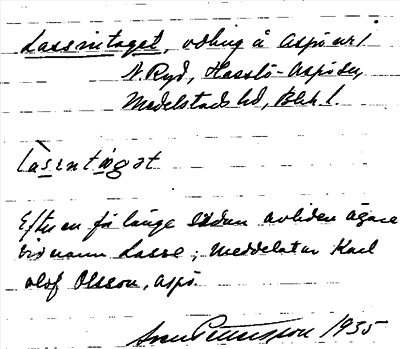 Lassintaget, odling å Aspö nr 1
N. Ryd, Hasslö-Aspö sn,
Medelstads hd, Blek. l.
lasintaget
Efter en för länge sedan avliden ägare
vid namn Lasse; Meddelat av Karl
Olof Olsson, Aspö.
Sven Pettersson 1935